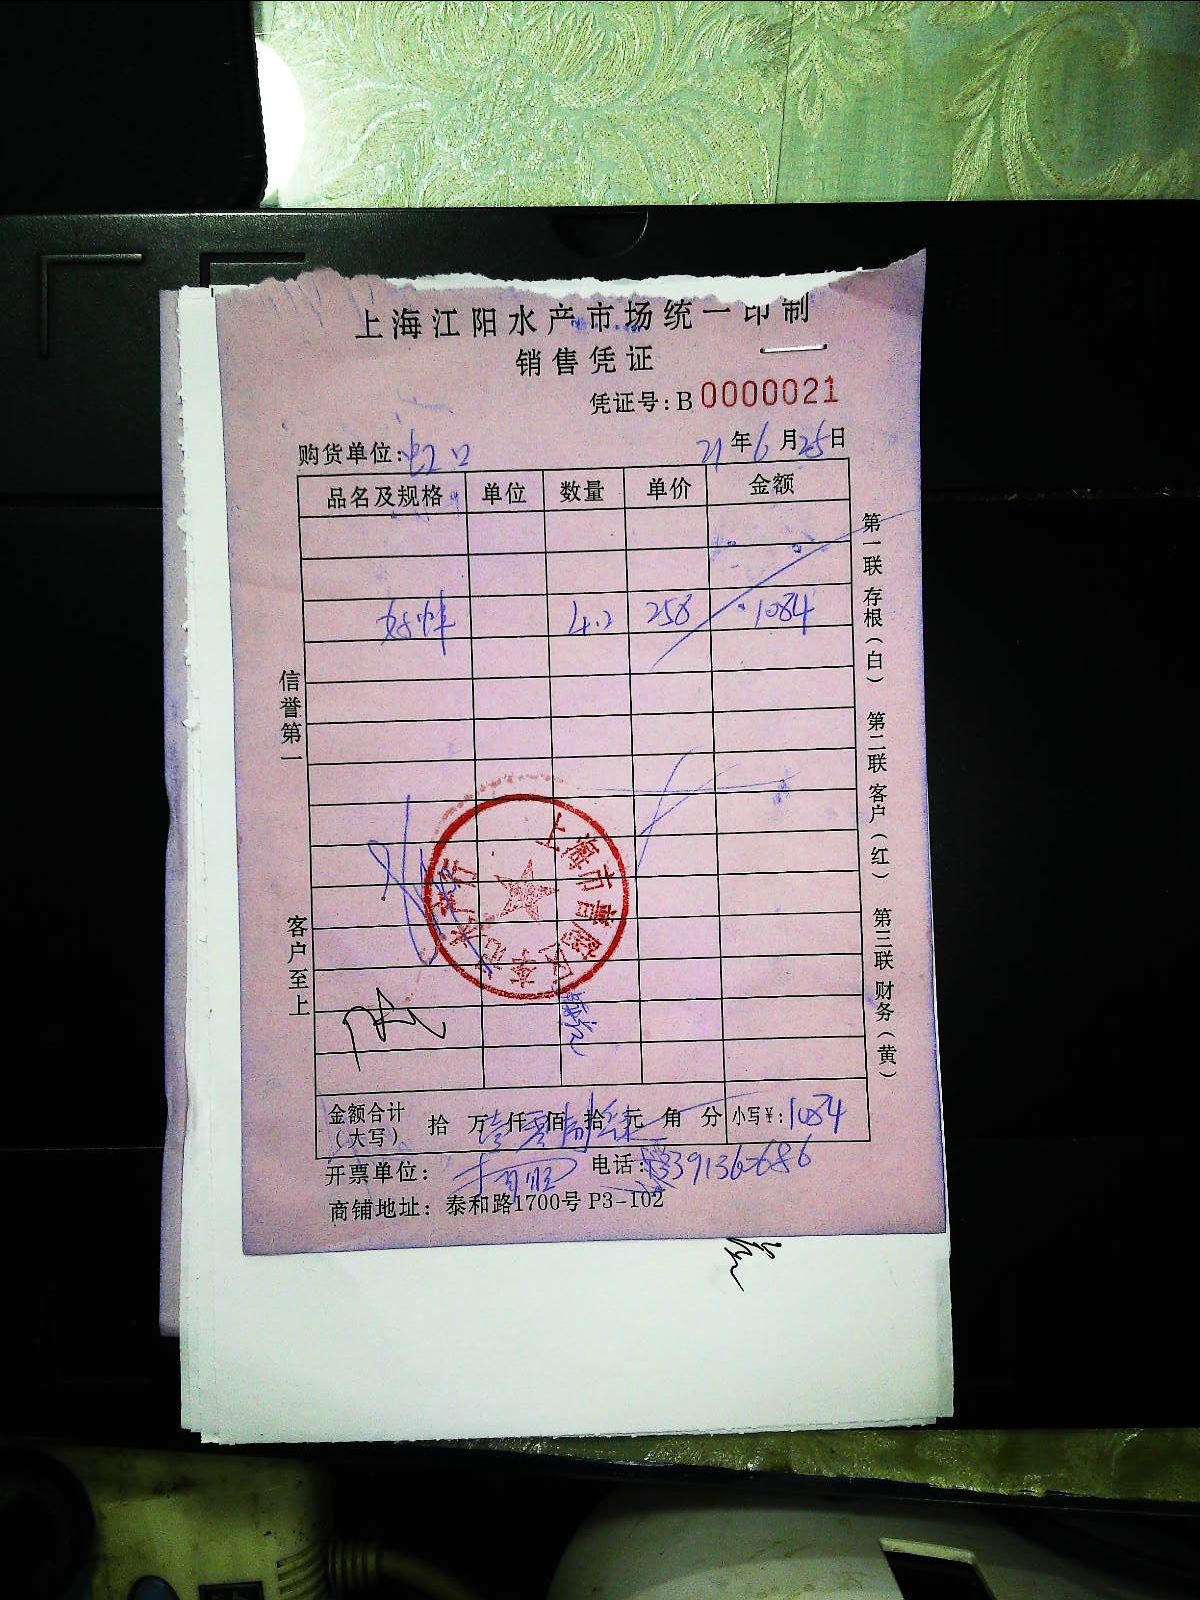 上海江阳水产市场统一印制
销售凭证
凭证号：B 0000021
购货单位：虹口 21年6月25日
品名及规格 单位 数量 单价 金额
4.2 258 1084
信誉第一
客户至上
第一联 存根（白） 第二联 客户（红） 第三联 财务（黄）
上海市普陀区
水产行
金额合计（大写） 拾 万 仟 佰 拾 元 角 分 小写￥：1084
开票单位： 电话：
商铺地址：泰和路1700号 P3-102